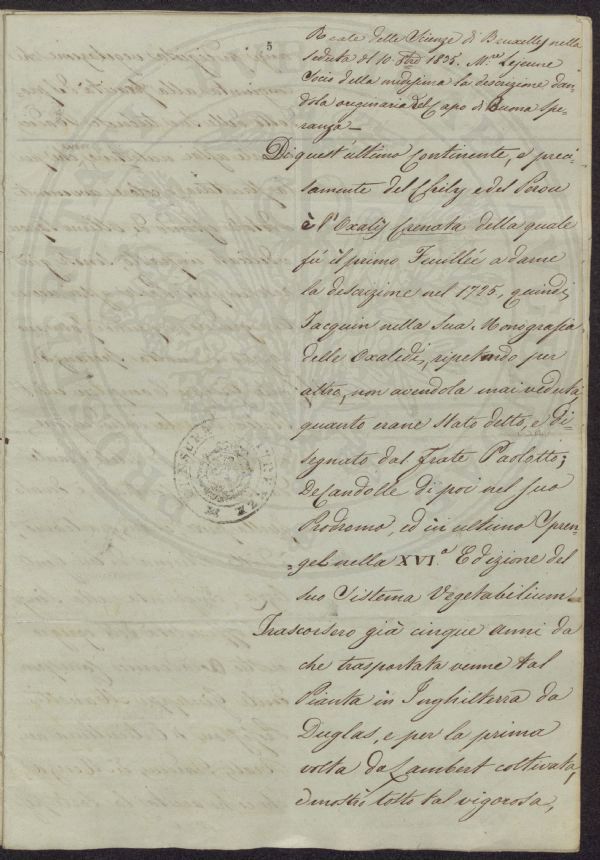 5
Reale delle Scienze di Bruxelles nella
seduta del 10 8bre 1835. Mr. Lejeune
Socio della medesima la descrizione dan-
dola originaria del Capo di Buona Spe-
ranza_
Di quest'ultimo Continente, e preci-
samente del Chily e del Perou
è l'Oxalis Crenata della quale
fù il primo Feuillée a darne
la descrizione nel 1725, quindi
Jacquin nella sua Monografia
delle Oxalidi, ripetendo per
altro, non avendola mai veduta,
quanto erane stato detto, e di-
segnato dal Frate Paolotto;
DeCandolle di poi nel suo
Prodromo, ed in ultimo Spren-
=gel nella XVI.a Edizione del
suo Sistema Vegetabilium_
Trascorsero già cinque anni da
che trasportata venne tal
Pianta in Inghilterra da
Duglas, e per la prima
volta da Lambert coltivata,
dimostrò tosto tal vigorosa,